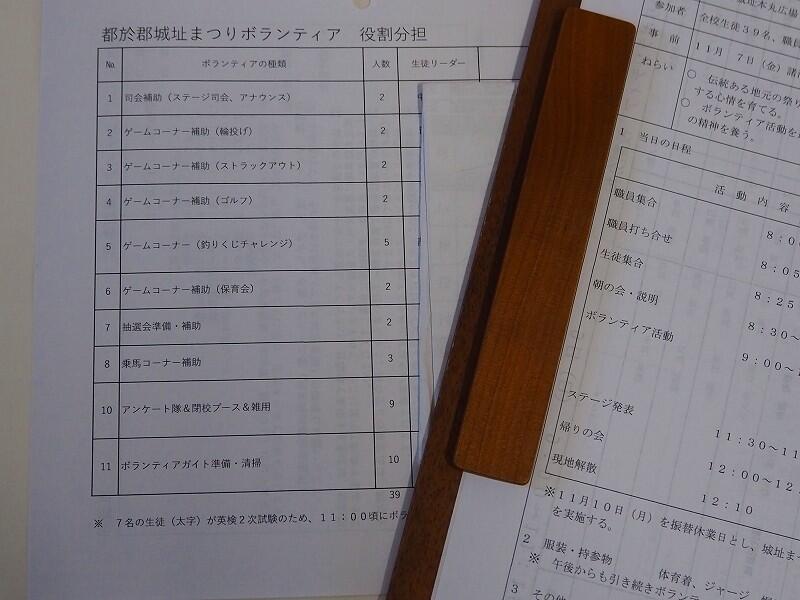 都於郡城址まつりボランティア　役割分担
№ ボランティアの種類 人数 生徒リーダー
1 司会補助（ステージ司会、アナウンス） 2
2 ゲームコーナー補助（輪投げ） 2
3 ゲームコーナー補助（ストラックアウト） 2
4 ゲームコーナー補助（ゴルフ） 2
5 ゲームコーナー（釣りくじチャレンジ） 5
6 ゲームコーナー補助（保育会） 2
7 抽選会準備・補助 2
8 乗馬コーナー補助 3
10 アンケート隊＆閉校ブース＆雑用 9
11 ボランティアガイト準備・清掃 10
39
※　７名の生徒（太字）が英検２次試験のため、１１：００頃にボ
城址本丸広場
参加者 全校生徒３９名、職員
事 前 １１月　７日（金）諸
ねらい ○　伝統ある地元の祭り
する心情を育てる。
○　ボランティア活動を
の精神を養う。
１　当日の日程
活　動　内　容
職員集合 ８：０
職員打ち合せ ８：０５
生徒集合 ８：２５
朝の会・説明 ８：３０～
ボランティア活動 ９：００～
ステージ発表 １１：３０～１１
帰りの会 １２：００～１２
現地解散 １２：１０
※１１月１０日（月）を振替休業日とし、城址ま
を実施する。
２　服装・持参物 体育着、ジャージ
※　午後からも引き続きボラン
３　その他